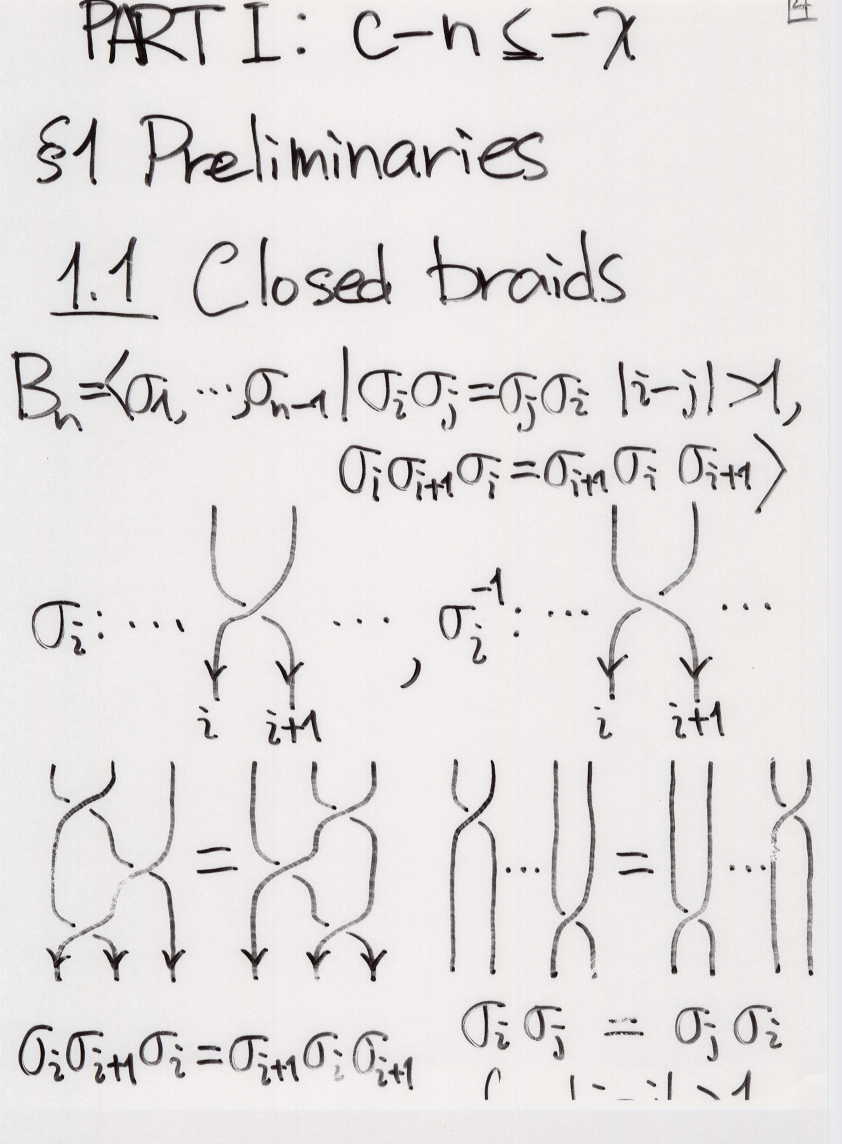 4
PART I: c-n ≤ -χ
§1 Preliminaries
1.1 Closed braids
Bn=⟨σ1, ⋯, σn-1 | σiσj=σjσi |i-j|>1,
σiσi+1σi=σi+1σiσi+1⟩
σi: ⋯ ⋯ , σi^-1: ⋯ ⋯
i i+1 i i+1
= ⋯ = ⋯
σiσi+1σi=σi+1σiσi+1
σiσj = σjσi